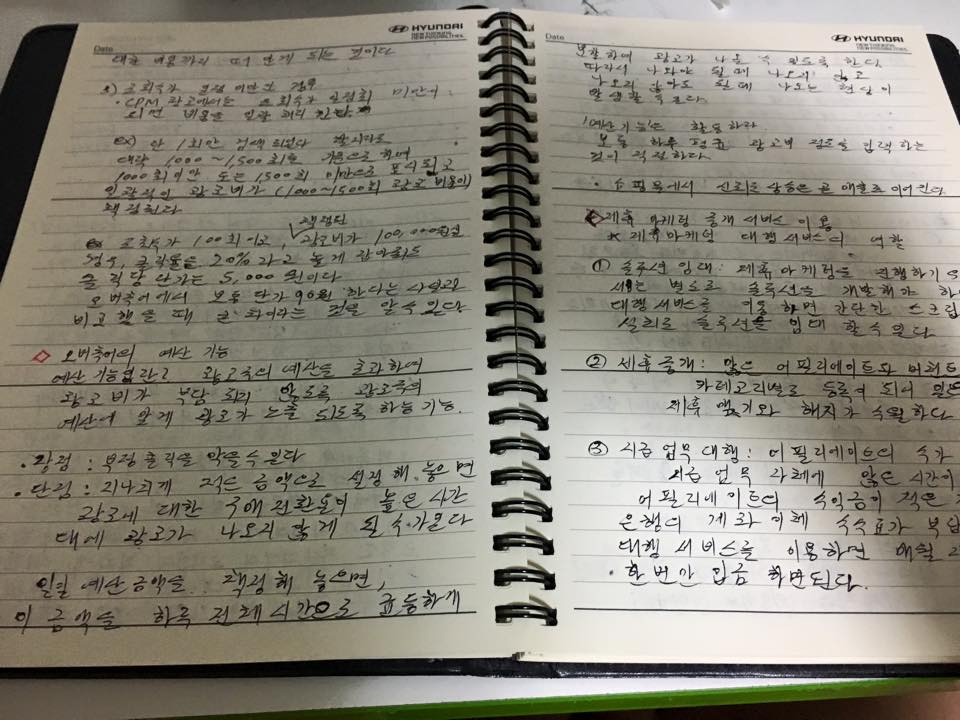 HYUNDAI
NEW THINKING.
NEW POSSIBILITIES.
Date
대한 비용까지 떠 안게 되는 것이다
조회수가 일정 미만인 경우
• CPM 광고에서는 조회수가 일정회 미만이
되면 비용을 일괄 처리 한다
ex) 단 1회만 검색 되었다 할지라도
대략 1000 ~ 1,500회를 기준으로 하여
1000회 미만 또는 1500회 미만으로 표시되고
일괄적인 광고비가 (1000~1500회 광고 비용이)
책정된다
책정된
ex 조회수가 100회이고, 광고비가 100,000원일
경우, 클릭율을 20%라고 높게 잡아도
클릭당 단가는 5,000원이다
오버츄어에서 보통 단가 90원 한다는 사실과
비교했을 때 큰 차이라는 것을 알 수 있다
◇ 오버츄어의 예산 기능
예산 기능이란? 광고주의 예산을 초과하여
광고비가 부담 되지 않도록 광고주의
예산에 맞게 광고가 노출 되도록 하는 기능.
• 장점 : 부정클릭을 막을 수 있다
• 단점 : 지나치게 적은 금액으로 설정해 놓으면
광고에 대한 구매 전환율이 높은 시간
대에 광고가 나오지 않게 될 수 가 있다
일일 예산 금액을 책정해 놓으면,
이 금액을 하루 전체시간으로 균등하게
HYUNDAI
NEW THINKING.
NEW POSSIBILITIES.
Date
분할하여 광고가 나올 수 있도록 한다
따라서 나와야 될 때 나오지 않고
나오지 않아도 될 때 나오는 현상이
발생할 수 있다.
'예산기능'은 활용하라
보통 하루 평균 광고비 정도를 입력하는
것이 적절하다.
• 쇼핑몰에서 신뢰도 상승은 곧 매출로 이어진다.
◇ 제휴 마케팅 중개 서비스 이용
* 제휴마케팅 대행 서비스의 역할
① 솔루션 임대 : 제휴마케팅을 진행하기 위
해서는 별도로 솔루션을 개발해야 하
대행 서비스를 이용하면 간단한 스크립
설치로 솔루션을 임대 할 수 있다
② 제휴 중개 : 많은 어필리에이트와 머천트
카테고리별로 등록이 되어 있
제휴 맺기와 해지가 수월하다
③ 지급 업무 대행 : 어필리에이트의 수가
지급 업무 자체에 많은 시간이
어필리에이트의 수익금이 적은
은행의 계좌 이체 수수료가 부담
대행 서비스를 이용하면 매월
• 한번만 입금 하면된다.